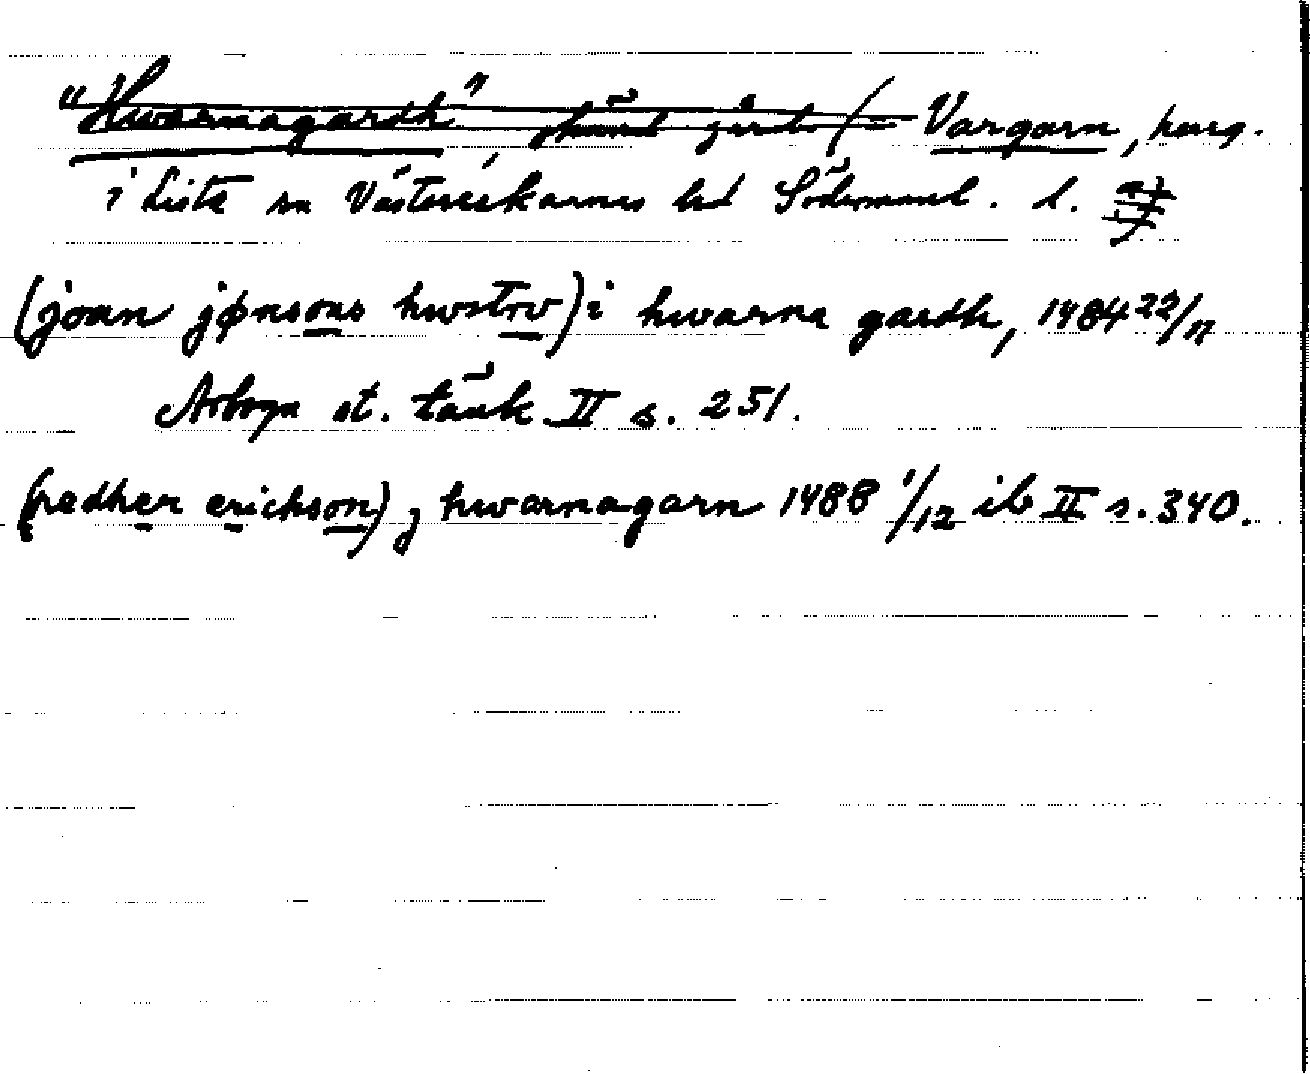 "Hwarnagardh", okänd gård (= Vargarn, herrg.
i Lista sn Västerrekarnes hd Södermanl. l.
(joan jønsons hwstrv) i hwarna gardh, 1484 22/11
Arboga st. tänk II s. 251.
(pedher erichson) j hwarnagarn 1488 1/12 ib II s. 340.